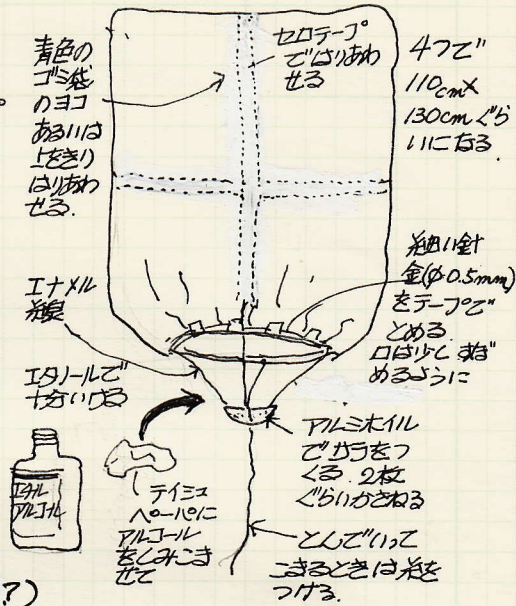 青色の
ゴミ袋
のヨコ
あるいは
上をきり
はりあわ
せる.
セロテープ
ではりあわ
せる
4つで
110cm×
130cmぐら
いになる
細い針
金(φ0.5mm)
をテープで
とめる.
口は少しすぼ
めるように
エナメル
線
エタノールで
十分いける
エチル
アルコール
ティシュ
ペーパに
アルコール
をしみこま
せて
アルミホイル
でサラをつ
くる. 2枚
ぐらいかさねる
とんでいって
こまるときは糸を
つける.
?)